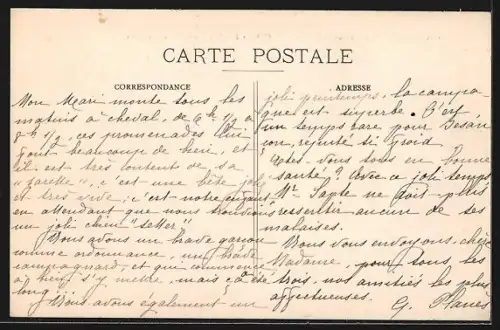 CARTE POSTALE
CORRESPONDANCE
Mon Mari monte tous les
matins à cheval, de 6h 1/2 à
8h 1/2, ces promenades lui
font beaucoup de bien, et
il est très content de sa
"farette", c'est une bête jolie
et très vive; c'est notre enfant
en attendant que nous trouvions
un joli chien "setter".
Nous avons un brave garçon
comme ordonnance, un brave
campagnard, et qui commence
à s'y mettre, mais a été
long...
Nous avons également un
ADRESSE
joli printemps, la campa-
gne est superbe. C'est
un temps rare pour Besan
con, réputé si froid
Etes-vous tous en bonne
santé? Avec ce joli temps
Mr. ne doit plus
ressentir aucun de ses
malaises.
Nous vous envoyons, chère
Madame, pour tous les
trois, nos amitiés les plus
affectueuses.
G. Planes